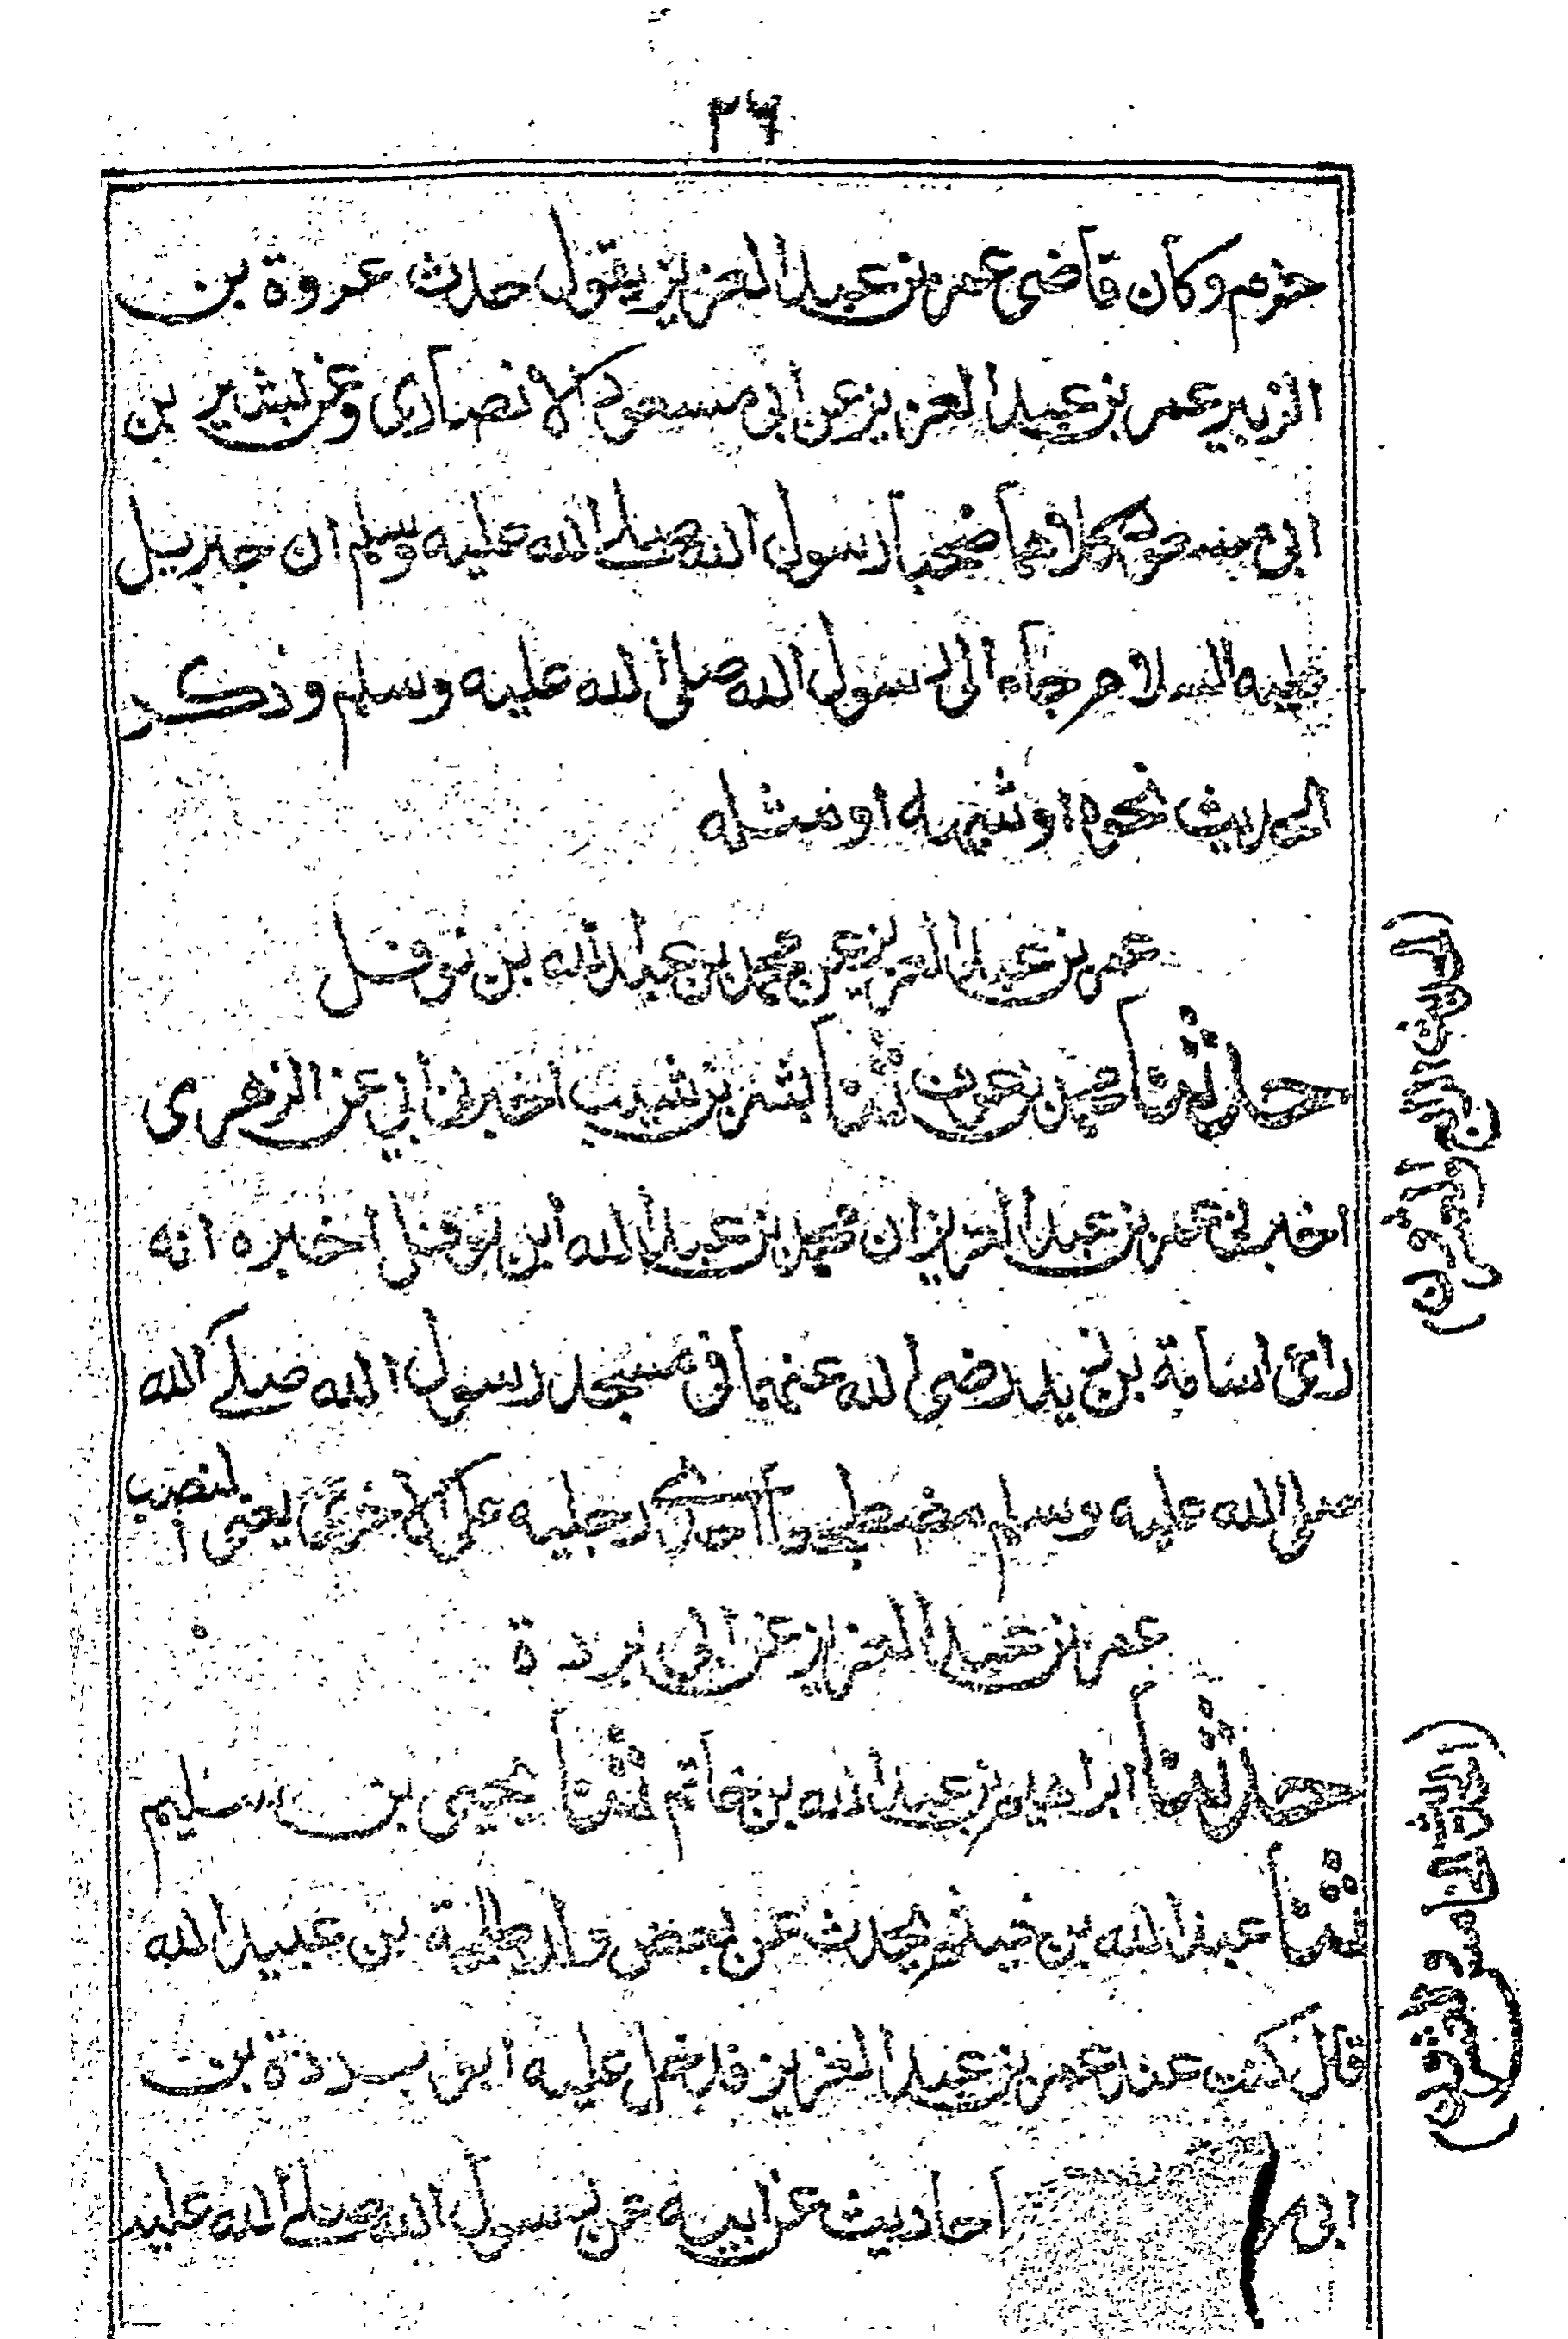 ٢٦
حزم وكان قاضى عمر بن عبد العزيز يقول حدث عروة بن
الزبير عمر بن عبد العزيز عن ابى مسعود الانصارى وعن بشير بن
ابى مسعود كلاهما صحبا رسول الله صلى الله عليه وسلم ان جبريل
عليه السلام جاء الى رسول الله صلى الله عليه وسلم وذكر
الحديث نحوه او شبهه او مثله
عمر بن عبد العزيز عن محمد بن عبد الله بن نوفل
حدثنا محمد بن عوف ثنا بشر بن شعيب اخبرنا ابى عن الزهرى
اخبرنى عمر بن عبد العزيز ان محمد بن عبد الله ابن نوفل اخبره انه
رائ اسامة بن زيد رضى الله عنهما فى مسجد رسول الله صلے الله
صلى الله عليه وسلم مضطجعا رجليه على الاخرى يعنى لنصب
عمر بن عبد العزيز عن ابى بردة
حدثنا ابراهيم بن عبد الله بن حاتم ثنا يحيى بن سليم
ثنا عبد الله بن خيثم يحدث عن بعض ولد طلحة بن عبيد الله
قال كنت عند عمر بن عبد العزيز فدخل عليه ابو بردة بن
ابى احاديث عن ابيه عن رسول الله صلے الله عليه
(الحديث الرابع والعشرون)
(الحديث الخامس والعشرون)